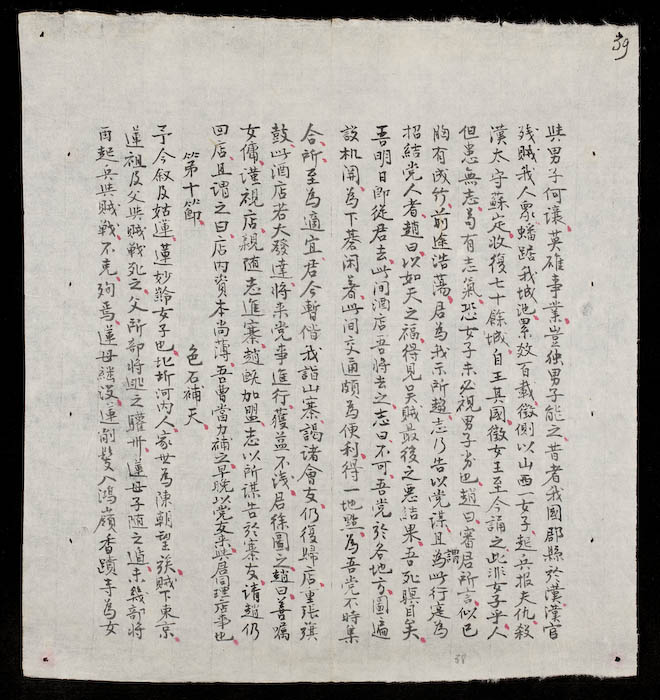 59
與男子何讓英雄事業豈独男子能之昔者我國郡縣於漢漢官
殘賊我人衆蟠踞我城池累效百載徵側以山西一女子起兵报夫仇殺
漢太守蘇定收復七十餘城自王其國徵女王至今誦之此非女子乎人
但患無志苟有志氣恐女子未必視男子劣也趙曰審君所言似已
胸有成竹前途浩蕩君為我示所趨志乃告以党謀且謂為此行寔為
招結党人者趙曰以如天之福得見吳賊最後之悪結果吾死瞑目矣
吾明日即從君去此间酒店吾將去之志曰不可吾党於各地方圖遍
設机関為下碁闲着此间交通頗為便利得一地點為吾党不時集
合所至為適宜君今暫偕我詣山寨謁諸會友仍復歸店重張旗
鼓此酒店若大發達將来党事進行獲益不浅君徐圖之趙曰善嘱
女傭谨視店親随志進寨趙既加盟志以所謀告於寨友請趙仍
回店且謂之曰店内資本尚薄吾曹當力補之早晚以党友来與居同理店事也
第十節 色石補天
予今叙及姑蓮蓮妙龄女子也圻河内人家世為陳朝望族賊下東京
蓮祖及父與賊戰死之父所部將逃之驩州蓮母子随之逌未幾部將
再起兵與賊戰不克殉焉蓮母継没蓮削髮入鴻嶺香蹟寺為女
58